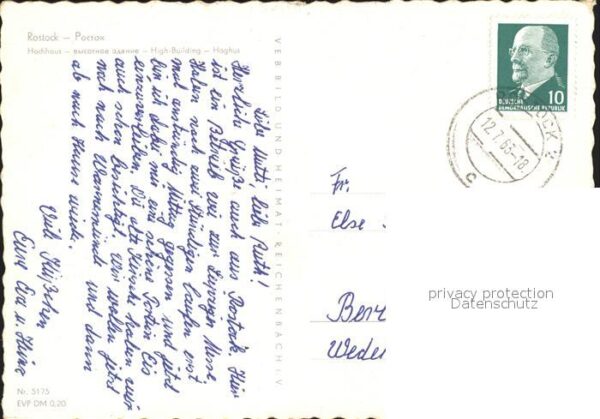 Rostock — Росток
Hochhaus — высотное здание — High-Building — Höghus
Liebe Mutti, liebe Ruth!
Herzliche Grüße auch aus Rostock. Hier
ist ein Betrieb wie zur Leipziger Messe
Haben nach zwei Stündigen laufen erst
mal anständig Mittag gegessen und jetzt
bin ich dabei mir eine schöne Portion Eis
einzuverleiben. Die alte Kirche haben wir
auch schon besichtigt. Wir wollen jetzt
noch nach Warnemünde und dann
ab nach Hause wieder.
Viele Küßchen
Eure Eva u. Heinz
Nr. 5175
EVP DM 0,20
VEB BILD UND HEIMAT · REICHENBACH i. V.
10
DEUTSCHE
DEMOKRATISCHE REPUBLIK
12.7.65-18
c
Fr.
Else
Ber
Wede
privacy protection
Datenschutz